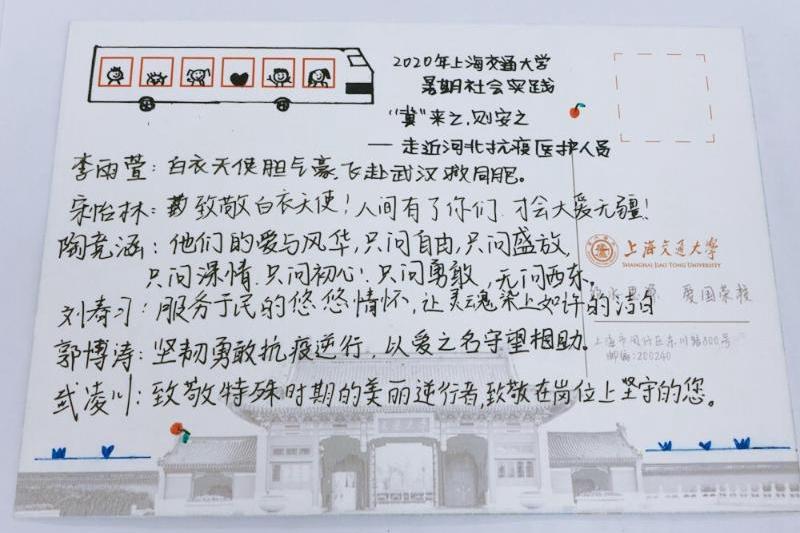 2020年上海交通大学
暑期社会实践
“冀”来之,则安之
——走近河北抗疫医护人员
李雨萱:白衣天使胆气豪,飞赴武汉救同胞。
宋怡林:致敬白衣天使!人间有了你们,才会大爱无疆!
陶竟涵:他们的爱与风华,只问自由,只问盛放,
只问深情,只问初心,只问勇敢,无问西东,
刘春习:服务于民的悠悠情怀,让灵魂染上如许的洁白
郭博涛:坚韧勇敢抗疫逆行,以爱之名守望相助。
武凌川:致敬特殊时期的美丽逆行者,致敬在岗位上坚守的您。
上海交通大学
SHANGHAI JIAO TONG UNIVERSITY
饮水思源 爱国荣校
上海市闵行区东川路800号
邮编:200240